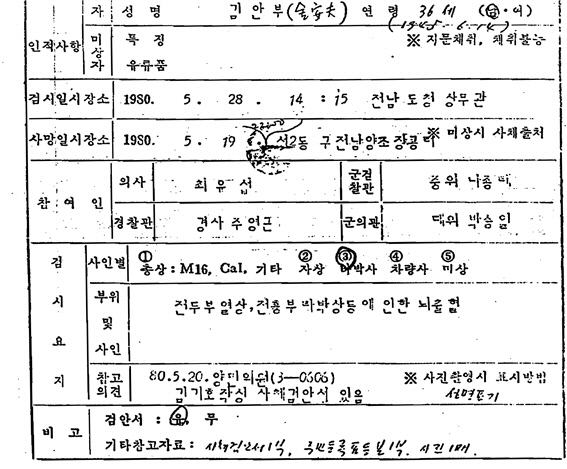 자 성 명 김안부(金安夫) 연 령 36세 (남·여)
인적사항 미상자 특 징 ※ 지문채취, 채취불능
유류품
검시일시장소 1980. 5. 28. 14:15 전남 도청 상무관
사망일시장소 1980. 5. 19 동 구 전남양조장공터 ※ 미상시 사체출처
참 여 인 의사 최 유 섭 군검찰관 중위
경찰관 경사 주영근 군의관 대위 박승일
검 시 요 지 사인별 ① 총상 : M16, Cal, 기타 ② 자상 ③ 타박사 ④ 차량사 ⑤ 미상
부위 및 사인 전두부열상, 전흉부 타박상등에 인한 뇌출혈
참고의견 80.5.20. 김기호작성 사체검안서 있음 ※ 사진촬영시 표시방법 성명표기
비 고 검안서 : 유, 무
기타참고자료 : 사체검안서1부, 주민등록표등본1부, 사진1매.